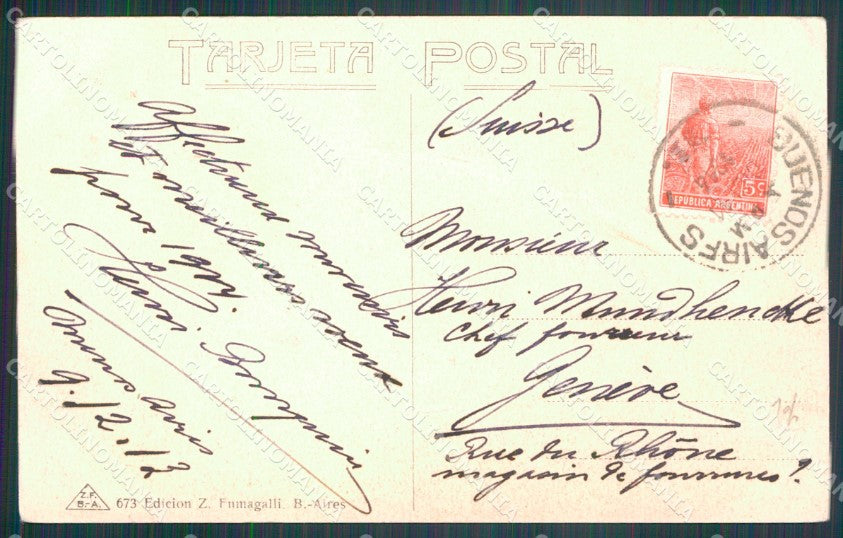 TARJETA POSTAL
(Suisse)
BUENOS AIRES
5c
REPUBLICA ARGENTINA
Affectueux
et meilleurs voeux
pour 1914.
Henri
Buenos aires
9.12.13
Monsieur
Henri Mundhencke
Chef fourreur
Genève
Rue du Rhône
magasin de fourrures
Z.F.
B.-A.
673 Edicion Z. Fumagalli. B.-Aires
CARTOLINOMANIA